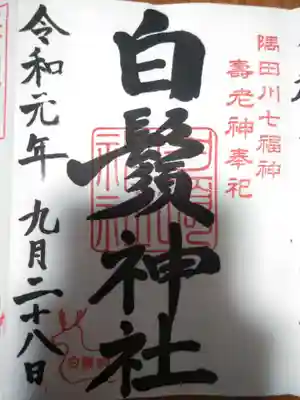 隅田川七福神
壽老神奉祀
白鬚神社
令和元年 九月二十八日